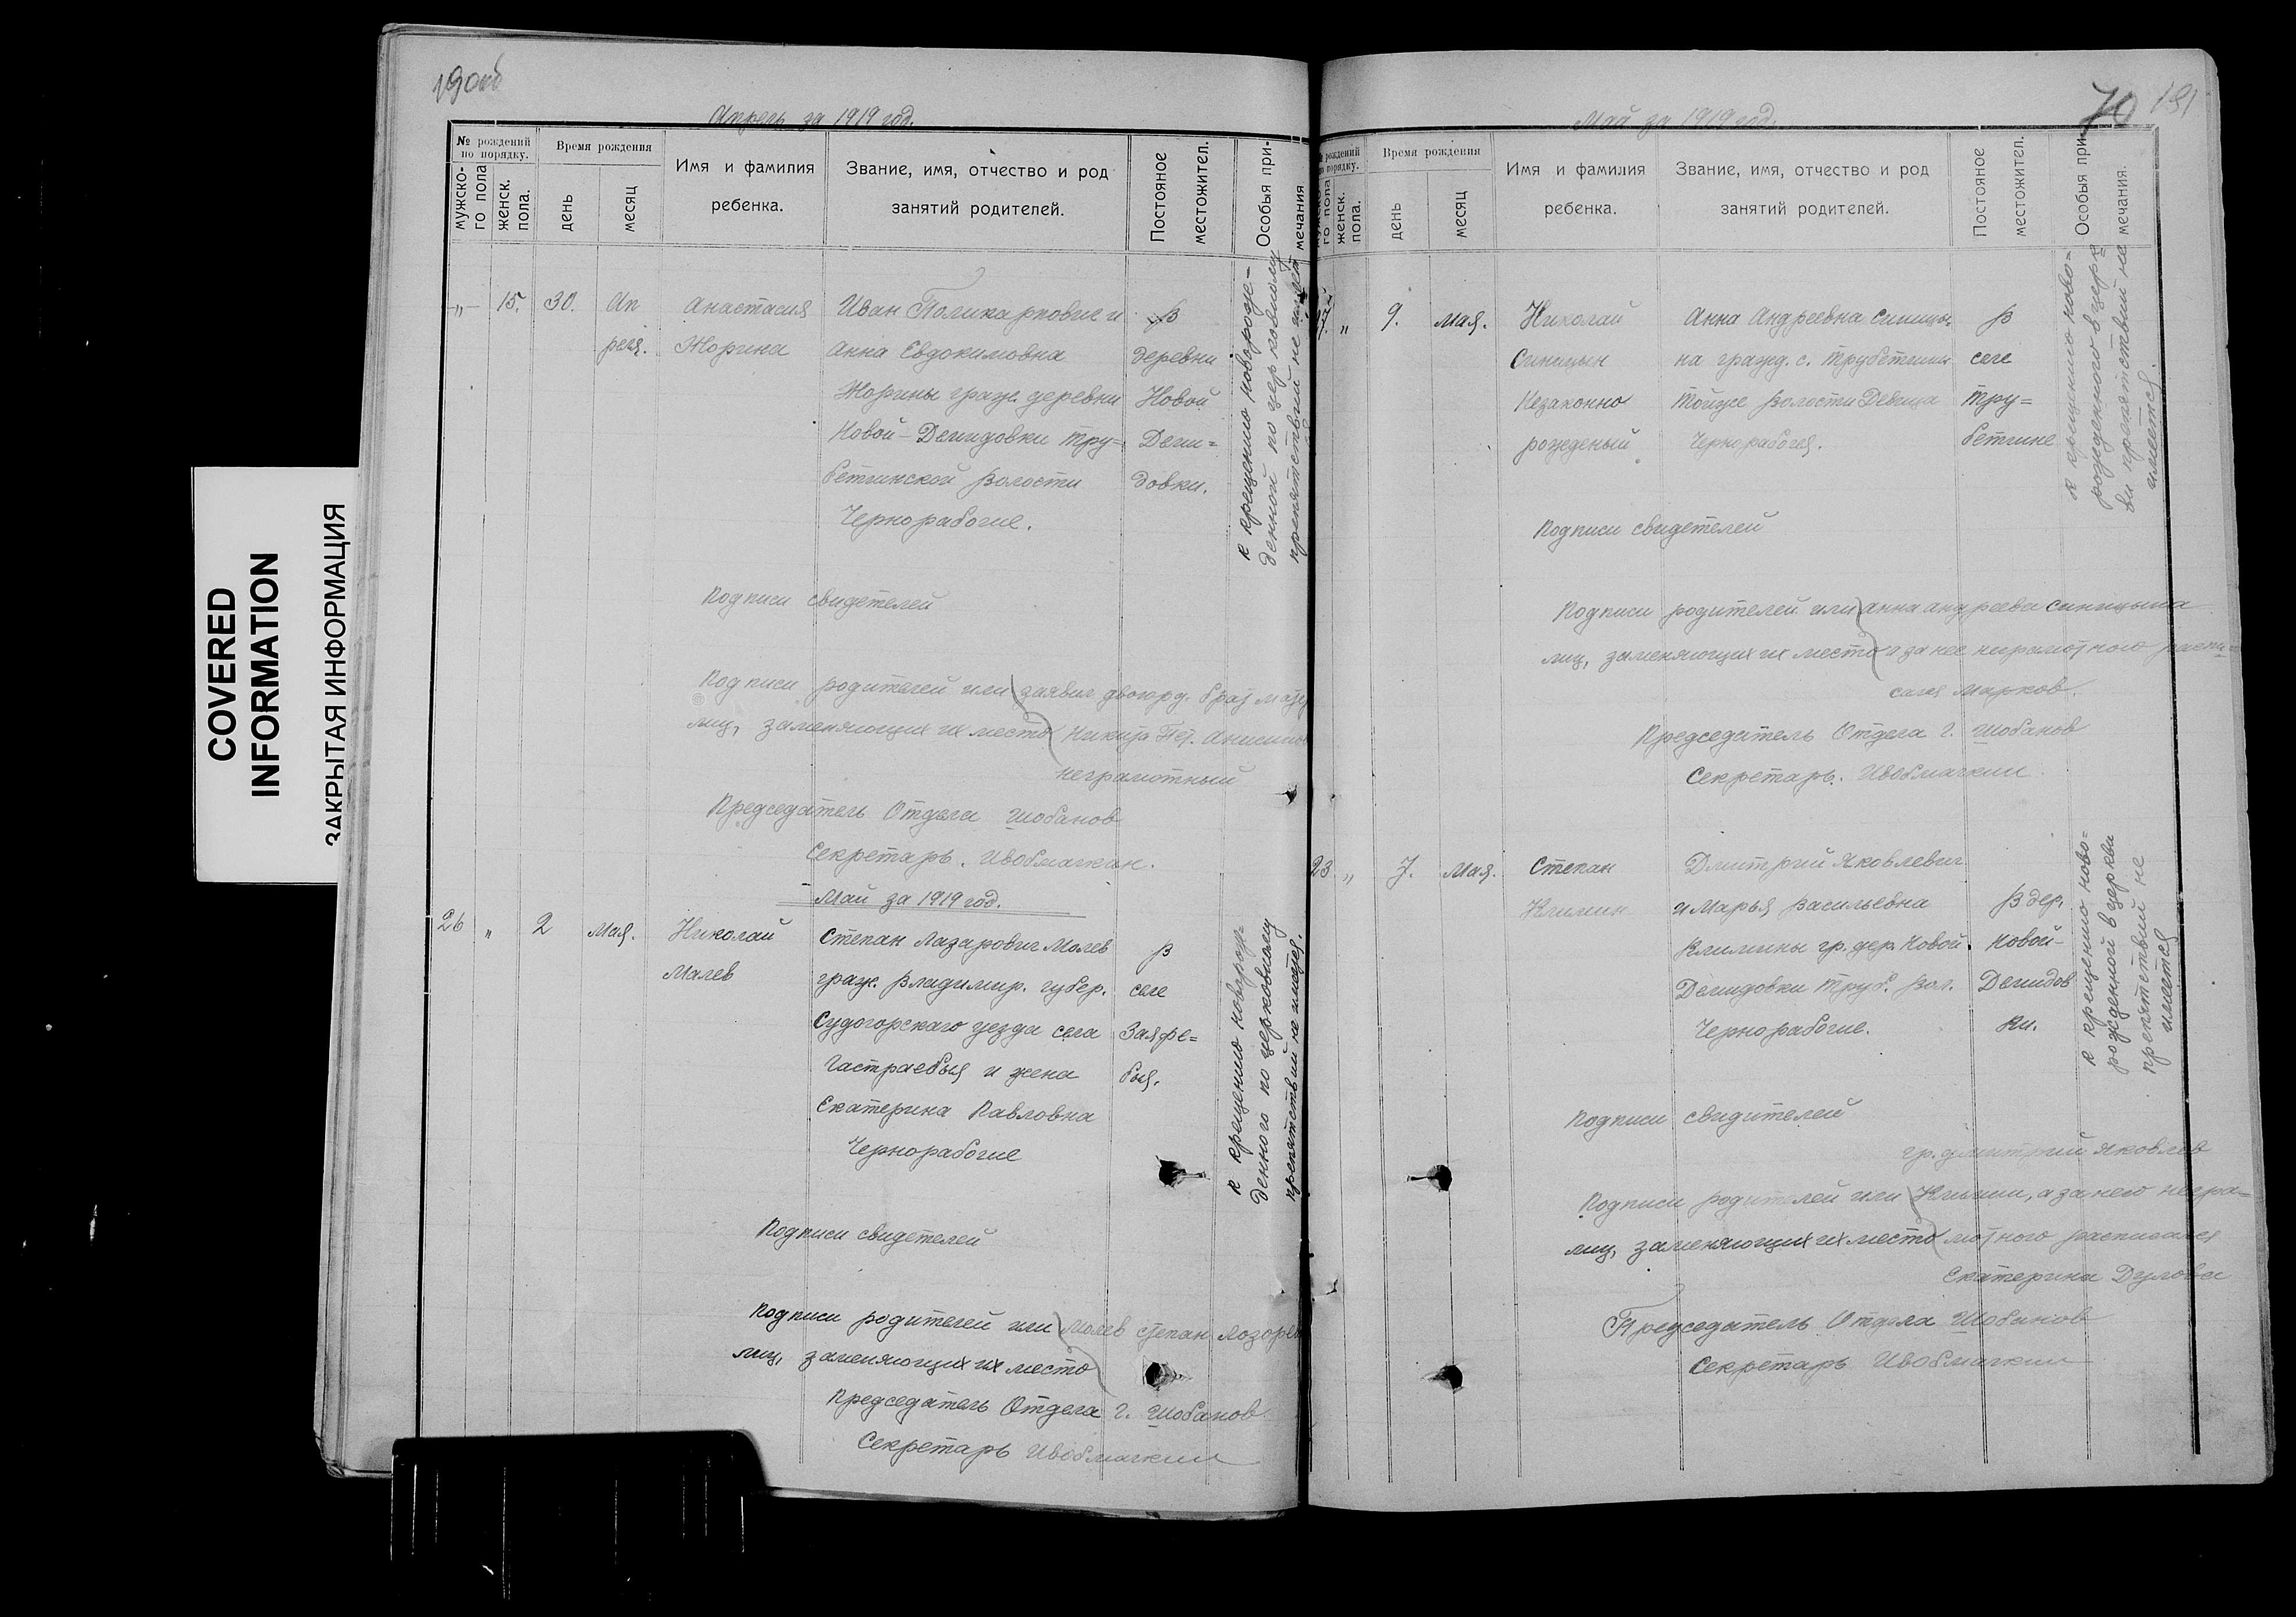 190об
Апрель за 1919 год.
№ рождений по порядку.
мужско-го пола
женск. пола.
Время рождения
день
месяц
Имя и фамилия ребенка.
Звание, имя, отчество и род занятий родителей.
Постояное местожител.
Особыя при-мечания
„ 15. 30. Ап Анастасия Иван Поликарпович и В
реля. Жорина Анна Евдокимовна деревни
Жорины граж. деревни Новой
Новой-Демидовки Тру= Деми=
бетчинской волости довки.
Чернорабочие.
К крещению новорож-
денной по церковному
препятствий не
Подписи свидетелей
Подписи родителей или заявил двоюрд. брат
лиц, заменяющих их место Никита Пет. Анисимов
неграмотный
Председатель Отдела Шобанов
Секретарь.
Май за 1919 год.
26 „ 2 Мая. Николай Степан Лазарович Малев В
Малев граж. Владимир. губер. селе
Судогорскаго уезда села Заяре=
и жена бья.
Екатерина Павловна
Чернорабочие
К крещению новорож-
денного по церковному
препятствий не имется.
Подписи свидетелей
Подписи родителей или Малев Степан
лиц, заменяющих их место
Председатель Отдела Г. Шобанов
Секретарь
70 191
Май за 1919 год.
рождений по порядку.
го пола
женск. пола.
Время рождения
день
месяц
Имя и фамилия ребенка.
Звание, имя, отчество и род занятий родителей.
Постояное местожител.
Особыя при-мечания.
„ 9. Мая. Николай Анна Андреевна Синицы- В
Синицын на гражд. с. Трубетчина селе
Незаконно тойже волости Девица Тру=
рожденый Чернорабочая. бетчине
К крещению ново-
рожденного в церк=
ви препятствий не
имеется.
Подписи свидетелей
Подписи родителей или Анна Андреева Синицына
лиц, заменяющих их место а за нее
сался Марков.
Председатель Отдела Г. Шобанов
Секретарь.
23 „ 7. Мая. Степан Дмитрий Яковлевич
Климин и Марья Васильевна В дер.
Климины гр. дер. Новой Новой-
Демидовки Труб. вол. Демидов
Чернорабочие. ки.
К крещению ново-
рожденной в церкви
препятствий не
имеется
Подписи свидителей
гр. Дмитрий Яковлев
Подписи родителей или Климин, а за него негра=
лиц, заменяющих их место мотного расписался
Екатерина Дулова
Председатель Отдела Шобанов
Секретарь
COVERED
INFORMATION
ЗАКРЫТАЯ ИНФОРМАЦИЯ